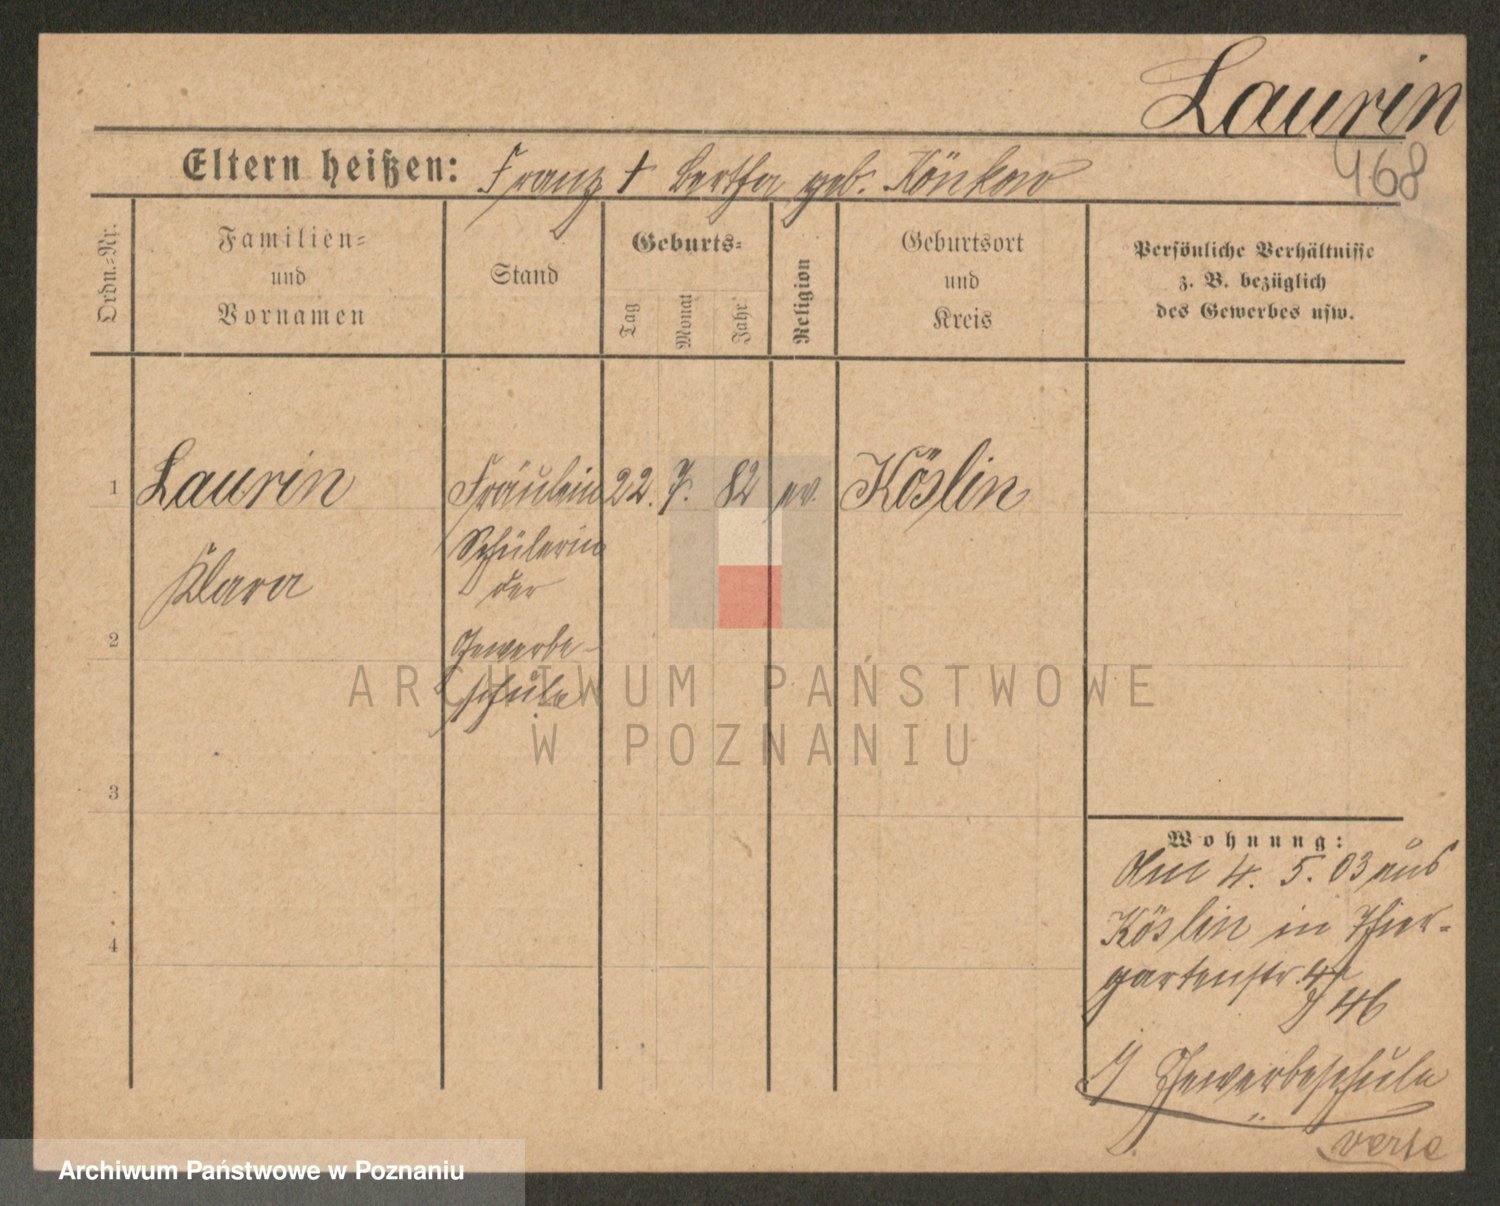 Laurin
468
Eltern heißen: Franz † Bertha geb. Könkow
Ordn.-Nr.
Familien-
und
Vornamen
Stand
Geburts-
Tag
Monat
Jahr
Religion
Geburtsort
und
Kreis
Persönliche Verhältnisse
z. B. bezüglich
des Gewerbes usw.
1 Laurin Fräulein 22. 7. 82 ev. Köslin
Schülerin
Klara der
2 Gewerbe-
schule
ARCHIWUM PAŃSTWOWE
W POZNANIU
3
4
Wohnung:
Am 4. 5. 03 aus
Köslin in Thier-
gartenstr. 4
46
Gewerbeschule
verte
Archiwum Państwowe w Poznaniu